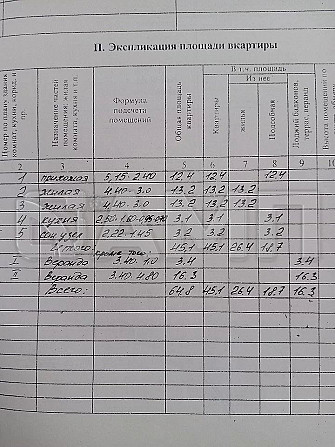 II. Экспликация площади вкартиры
Номер по плану здания комнат, кухни, корид. и пр.
Название частей помещения: жилая комната, кухня и т.п.
Формула подсчета помещений
Общая площадь квартиры
В т.ч. площадь
Из нее
Квартиры
жилая
Подсобная
Лоджий балконов, террас, веранд
Высота помещений по
2 3 4 5 6 7 8 9 10
1 прихожая 5,15·2.40 12.4 12.4 12.4
2 жилая 4,40·3.0 13,2 13,2 13,2
3 жилая 4,40·3.0 13,2 13,2 13,2
4 кухня 3,1 3.1 3.1
5 сан.узел 2.22·1.45 3.2 3.2 3.2
Итого: 45,1 45,1 26.4 18.7
кроме того:
I Веранда 3.40·1.0 3.4 3.4
II Веранда 3.40·4.80 16.3 16.3
Всего: 64.8 45,1 26.4 18.7 16.3